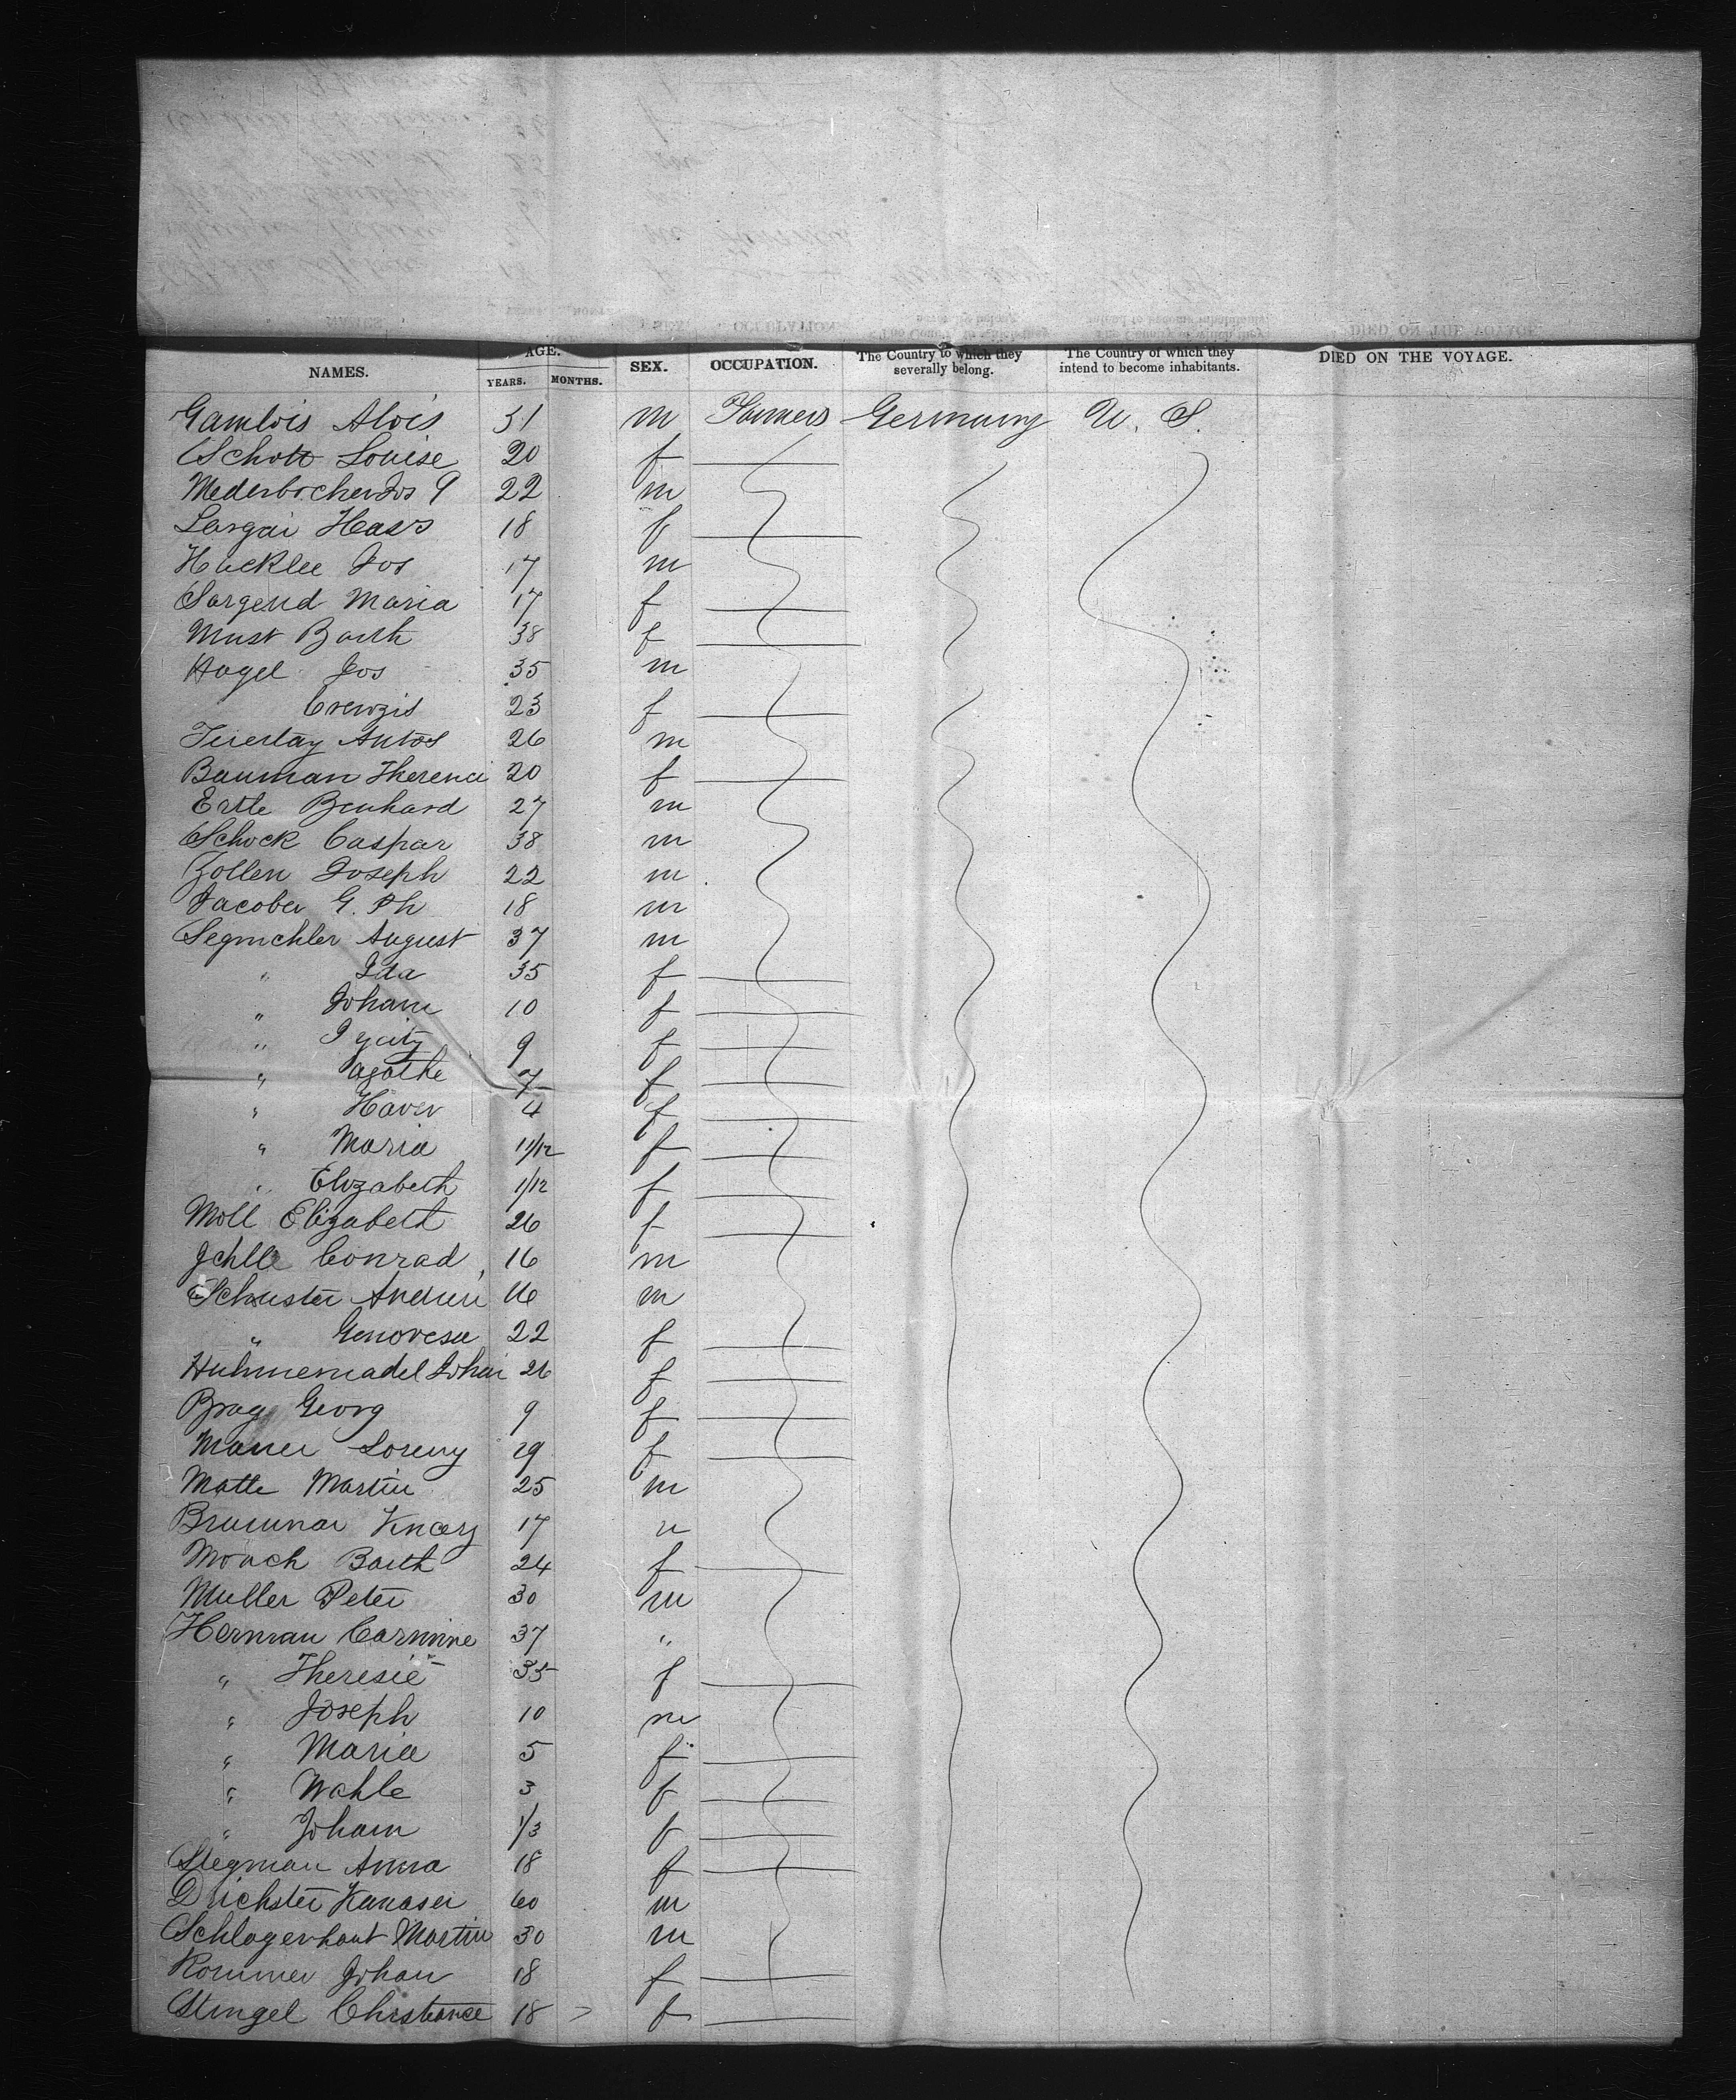 NAMES. AGE. YEARS. MONTHS. SEX. OCCUPATION. The Country to which they severally belong. The Country of which they intend to become inhabitants. DIED ON THE VOYAGE.
Gamlois Alois 31 m Farmers Germany U. S.
Schott Louise 20 f
Mederbocher Jos 9 22 m
Largai Hass 18 f
Hucklee Jos 17 m
Sargend Maria 17 f
Must Barth 38 f
Hagel Jos 35 m
Crewzis 23 f
Feiertag Antos 26 m
Bauman Therenci 20 f
Ertle Benhard 27 m
Schock Caspar 38 m
Zollen Joseph 22 m
Jacober G. Ph 18 m
Segmchler August 37 m
" Ida 35 f
" Joham 10 f
" 9 f
" Agathe 7 f
" Haver 4 f
" Maria 11/12 f
" Elizabeth 1/12 f
Moll Elizabeth 26 f
Jehlle Conrad 16 m
Schuster Andrew 16 m
" Genovesee 22 f
Huhmemadel Johan 26 f
Brag Georg 9 f
Maner Loreny 19 f
Matte Martin 25 m
Brummar 17 m
Monch Barth 24 f
Muller Peter 30 m
Herman Carmine 37 "
" Theresie 35 f
" Joseph 10 m
" Maria 5 f
" Wahle 3 f
" Joham 1/3 f
Stegman Anna 18 f
Drichster 60 m
Schlagenhaut Martin 30 m
Rommer Johan 18 f
Stingel Christance 18 f